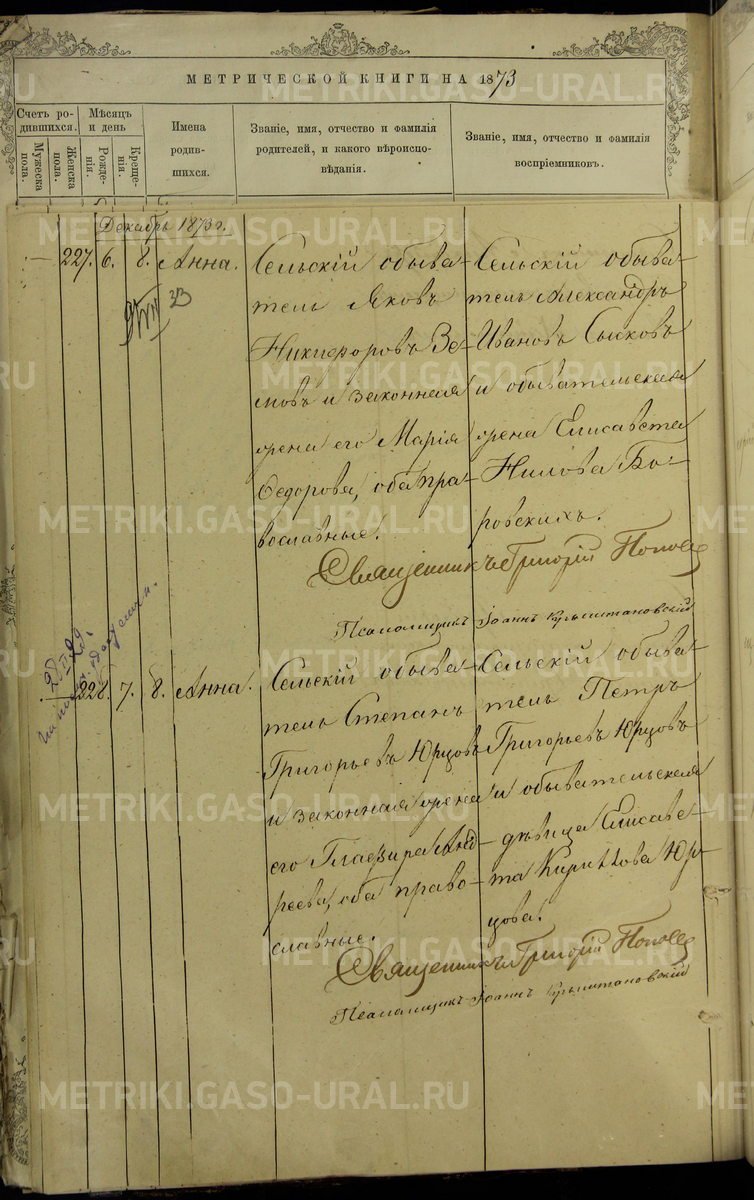 МЕТРИЧЕСКОЙ КНИГИ НА 1873
Счетъ ро-
дившихся.
Мужеска
пола.
Женска
пола.
Мѣсяцъ
и день
Рожде-
нія.
Креще-
нія.
Имена
родив-
шихся.
Званіе, имя, отчество и фамилія
родителей, и какого вѣроиспо-
вѣданія.
Званіе, имя, отчество и фамилія
воспріемниковъ.
Декабрь 1873 г.
227. 6. 8. Анна.
33
Сельскій обыва-
тель Яковъ
Никифоровъ Зе-
мовъ и законная
жена его Марія
Ѳедорова, оба пра-
вославные.
Сельскій обыва-
тель Александръ
Ивановъ Сысковъ
и обывательская
жена Елисавета
Нилова Бо-
ровскихъ.
Священникъ Григорій Поповъ
Псаломщикъ Іоаннъ
228. 7. 8. Анна.
Сельскій обыва-
тель Степанъ
Григорьевъ Юрцовъ
и законная жена
его Глафира Анд-
реева, оба право-
славные.
Сельскій обыва-
тель Петръ
Григорьевъ Юрцовъ
и обывательская
дѣвица Елисаве-
та Кириллова Юр-
цова.
Священникъ Григорій Поповъ
Псаломщикъ Іоаннъ
METRIKI.GASO-URAL.RU